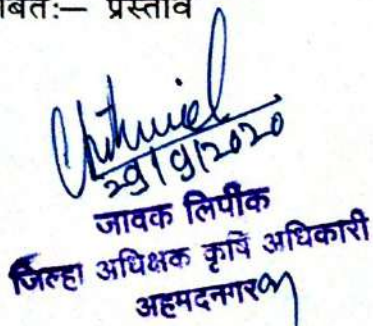 बत:— प्रस्ताव
29/9/2020
जावक लिपीक
जिल्हा अधिक्षक कृषि अधिकारी
अहमदनगर